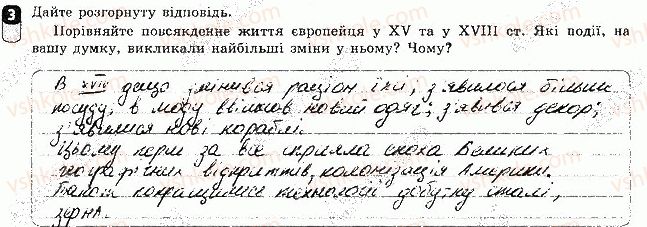 3 Дайте розгорнуту відповідь.
Порівняйте повсякденне життя європейця у XV та у XVIII ст. Які події, на
вашу думку, викликали найбільші зміни у ньому? Чому?
В XVIII дещо змінився раціон їжи; з'явилося більше
посуду; в моду ввійшов новий одяг; з'явився декор;
з'явилися нові кораблі.
Цьому перш за все сприяла епоха Великих
географічних відкриттів, колонізація Америки.
Також покращилися технології добутку сталі,
зерна.